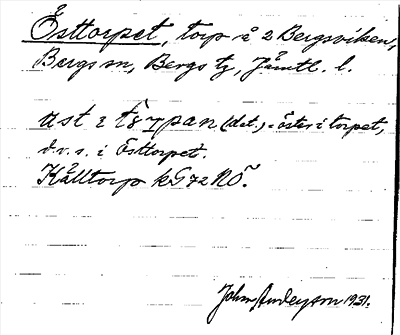 Östtorpet, torp i 2 Bergsviken,
Bergs sn, Bergs tg, Jämtl. l.
ust i (det.) = öster i torpet,
d.v.s. i Östtorpet.
Kålltorp kG 72 NÖ.
John Anderson 1931.